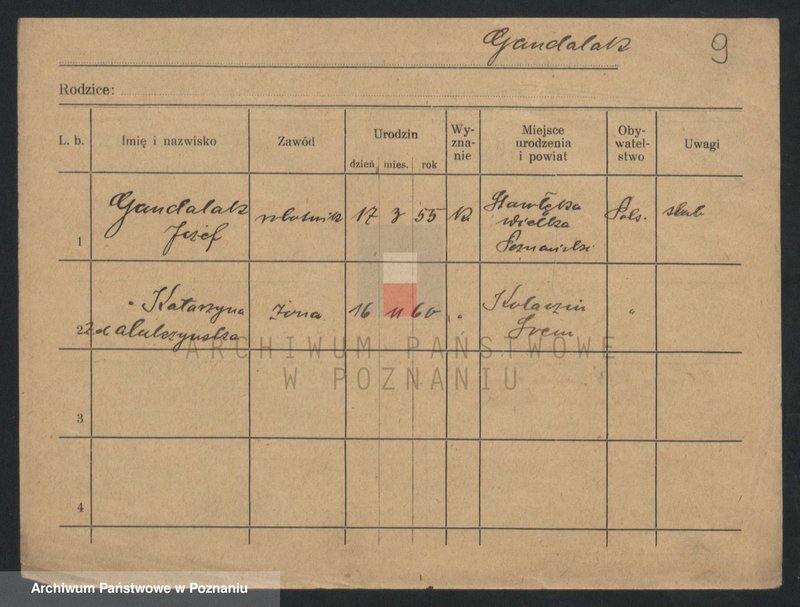 Gandalak 9
Rodzice:
L. b. Imię i nazwisko Zawód Urodzin dzień mies. rok Wy-zna-nie Miejsce urodzenia i powiat Oby-watel-stwo Uwagi
1 Gandalak Józef robotnik 17 3 55 K. Wielka Poznański Pols.
2 " Katarzyna żona 16 11 60 " Śrem "
3
4
ARCHIWUM PAŃSTWOWE
W POZNANIU
Archiwum Państwowe w Poznaniu